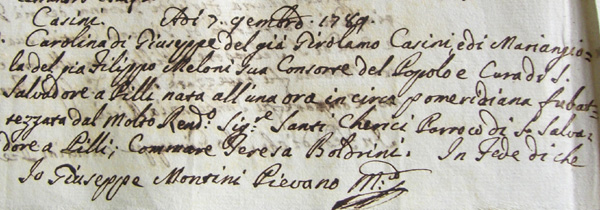 Casini. Adi 7. gembro. 1789
Carolina di Giuseppe del già Girolamo Casini, e di Mariangio=
la del già Filippo Meloni sua Consorte del Popolo e Cura di S.
Salvadore a Pilli nata all'una ora in circa pomeridiana fu bat=
tezzata dal Molto Rendo. Sigre. Santi Cherici Parroco di S. Salva=
dore a Pilli; Commare Teresa Boldrini. In Fede di che
Io Giuseppe Montini Pievano